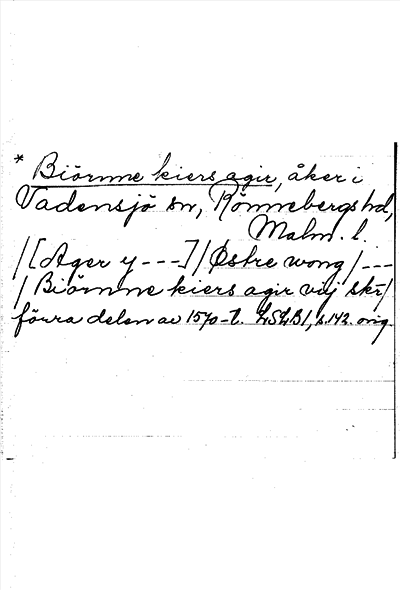 * Biörnne kiers agir, åker i
Vadensjö sn, Rönnebergs hd,
Malm. l.
/[Ager y ---]/ Østre wong /---
/ Biörnne kiers agir vij skr/
förra delen av 1570-t. LSLB1, s. 142. orig.